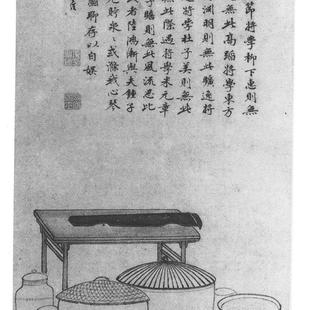 節將學柳下惠則無
無此高蹈將學東方
淵明則無此曠逸將
將學杜子美則無此
無此際遇將學米元章
子瞻則無此風流思比
者陸鴻漸與夫鍾子
貯泉〻或滌我心琴
圖聊存以自娛